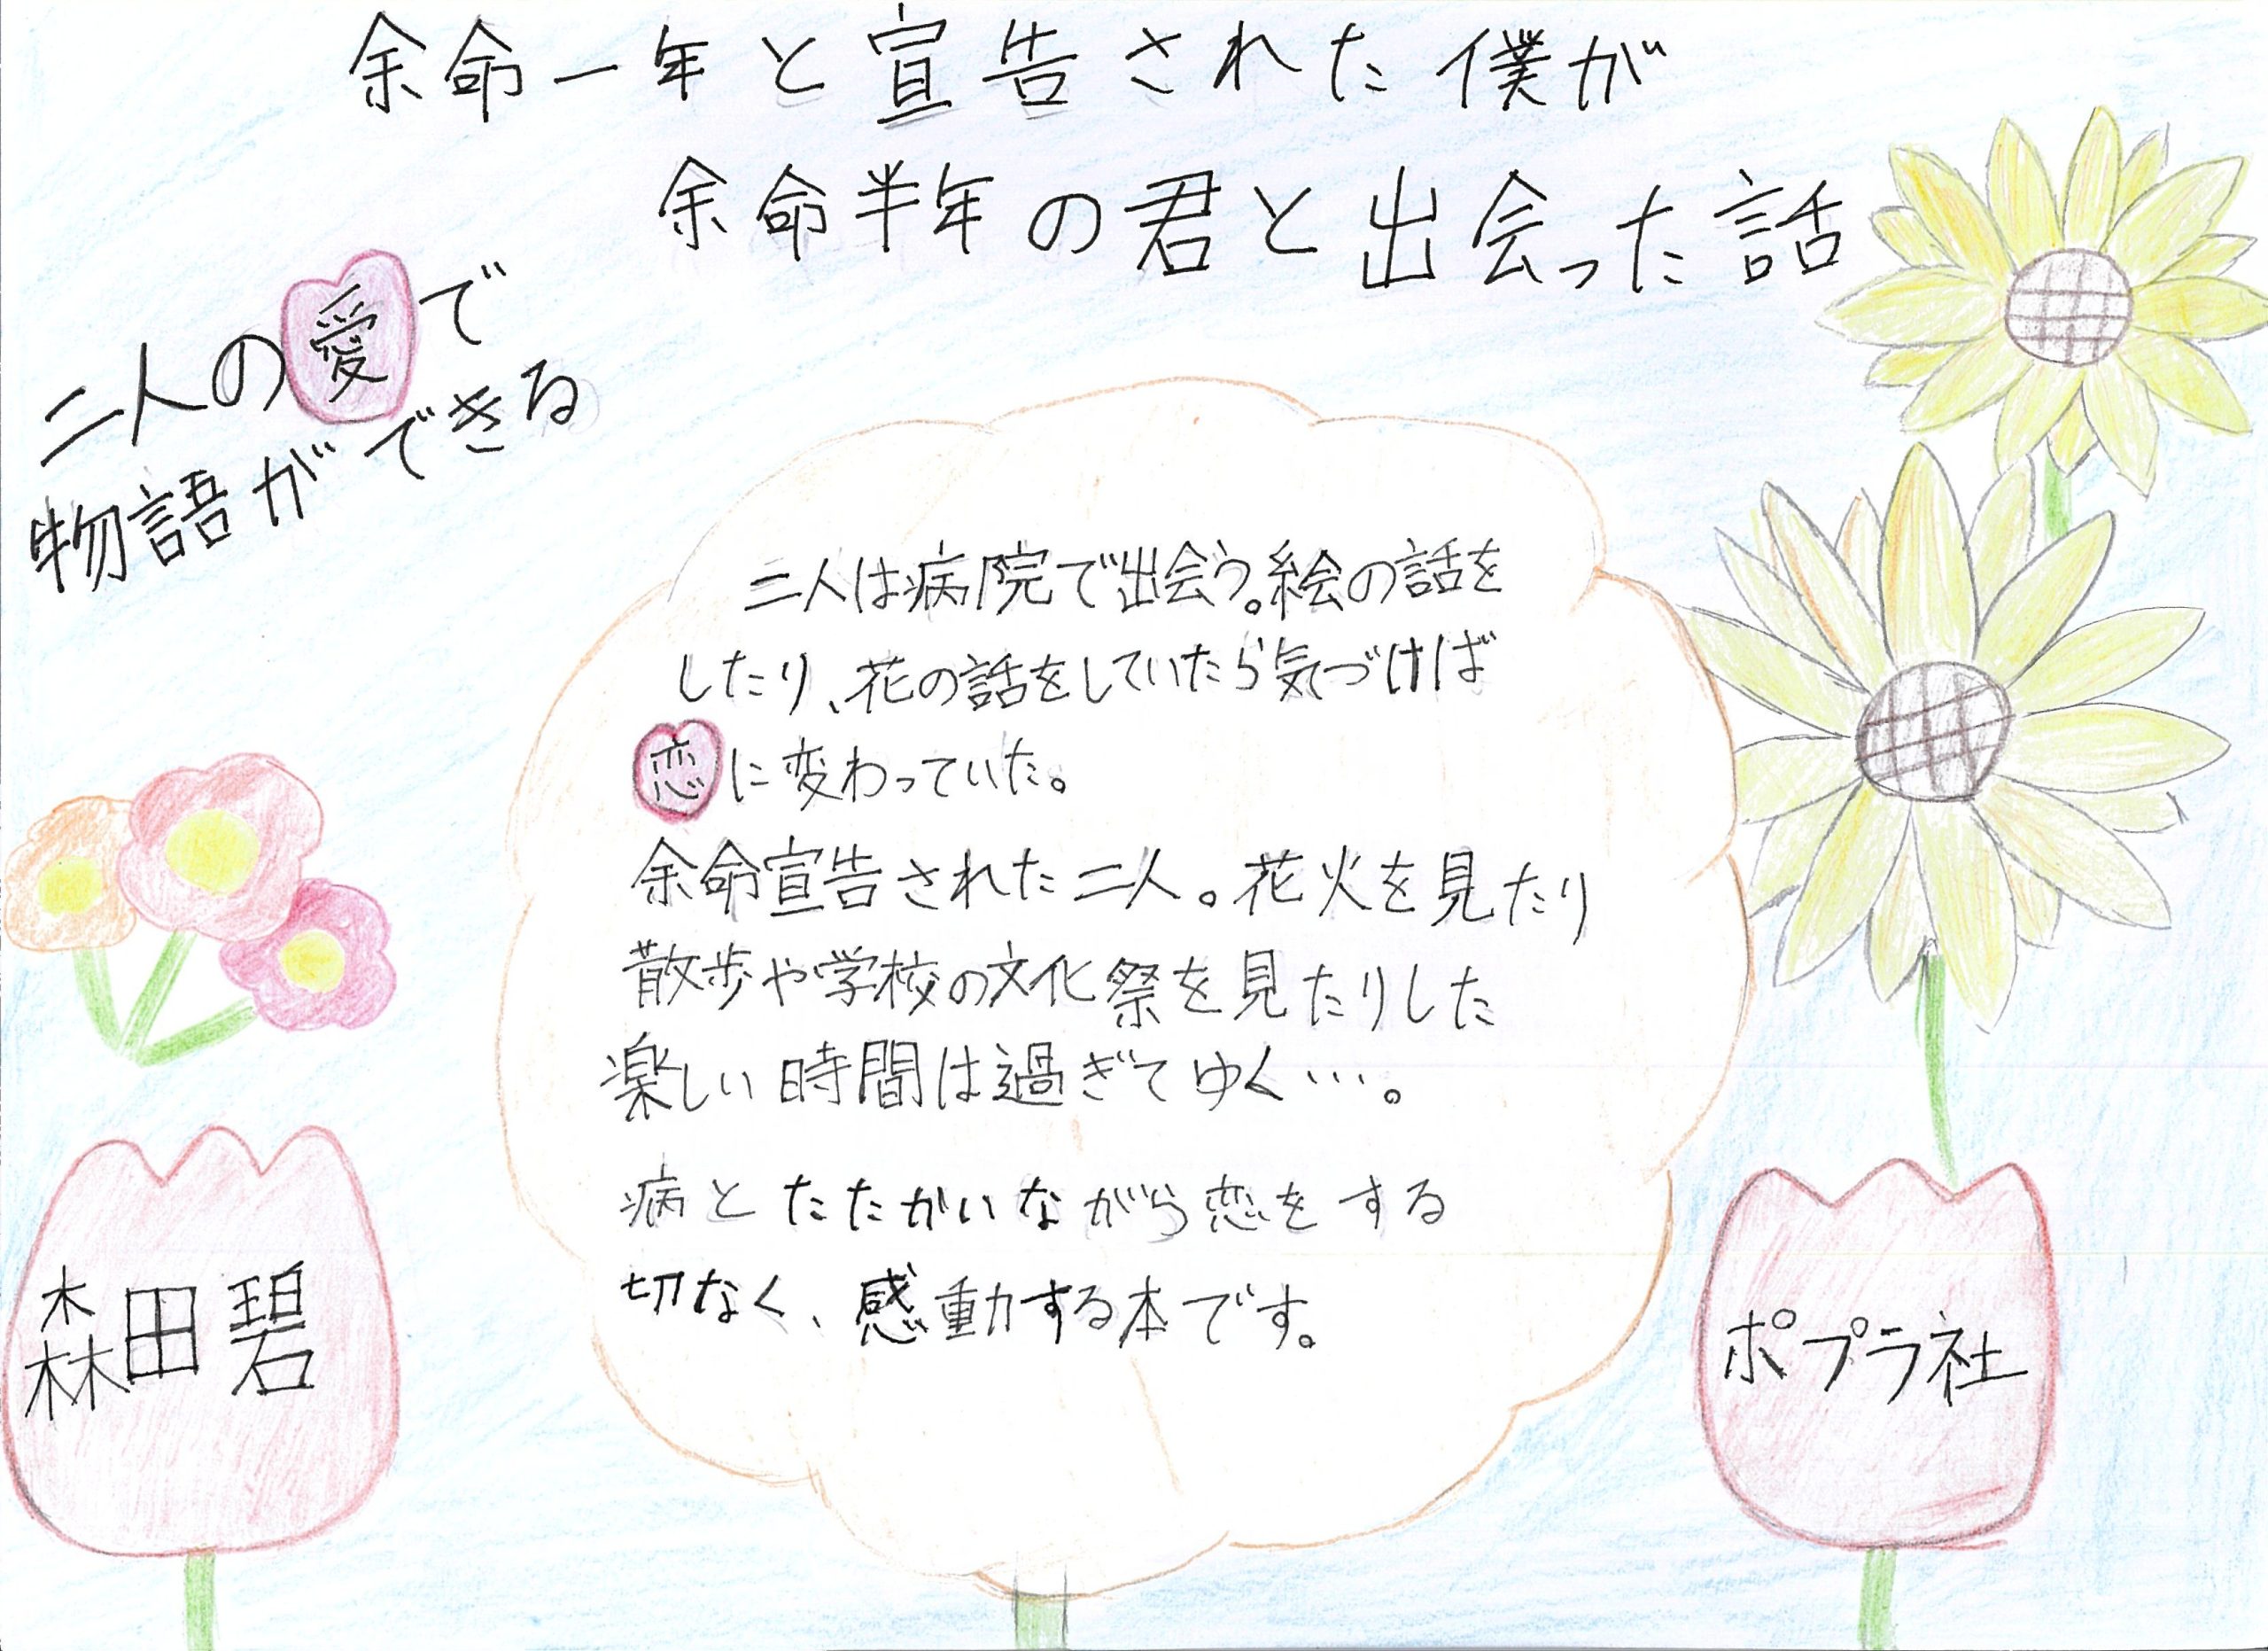 余命一年と宣告された僕が
余命半年の君と出会った話
二人の愛で
物語ができる
二人は病院で出会う。絵の話を
したり、花の話をしていたら気づけば
恋に変わっていた。
余命宣告された二人。花火を見たり
散歩や学校の文化祭を見たりした
楽しい時間は過ぎてゆく…。
病とたたかいながら恋をする
切なく、感動する本です。
森田碧
ポプラ社